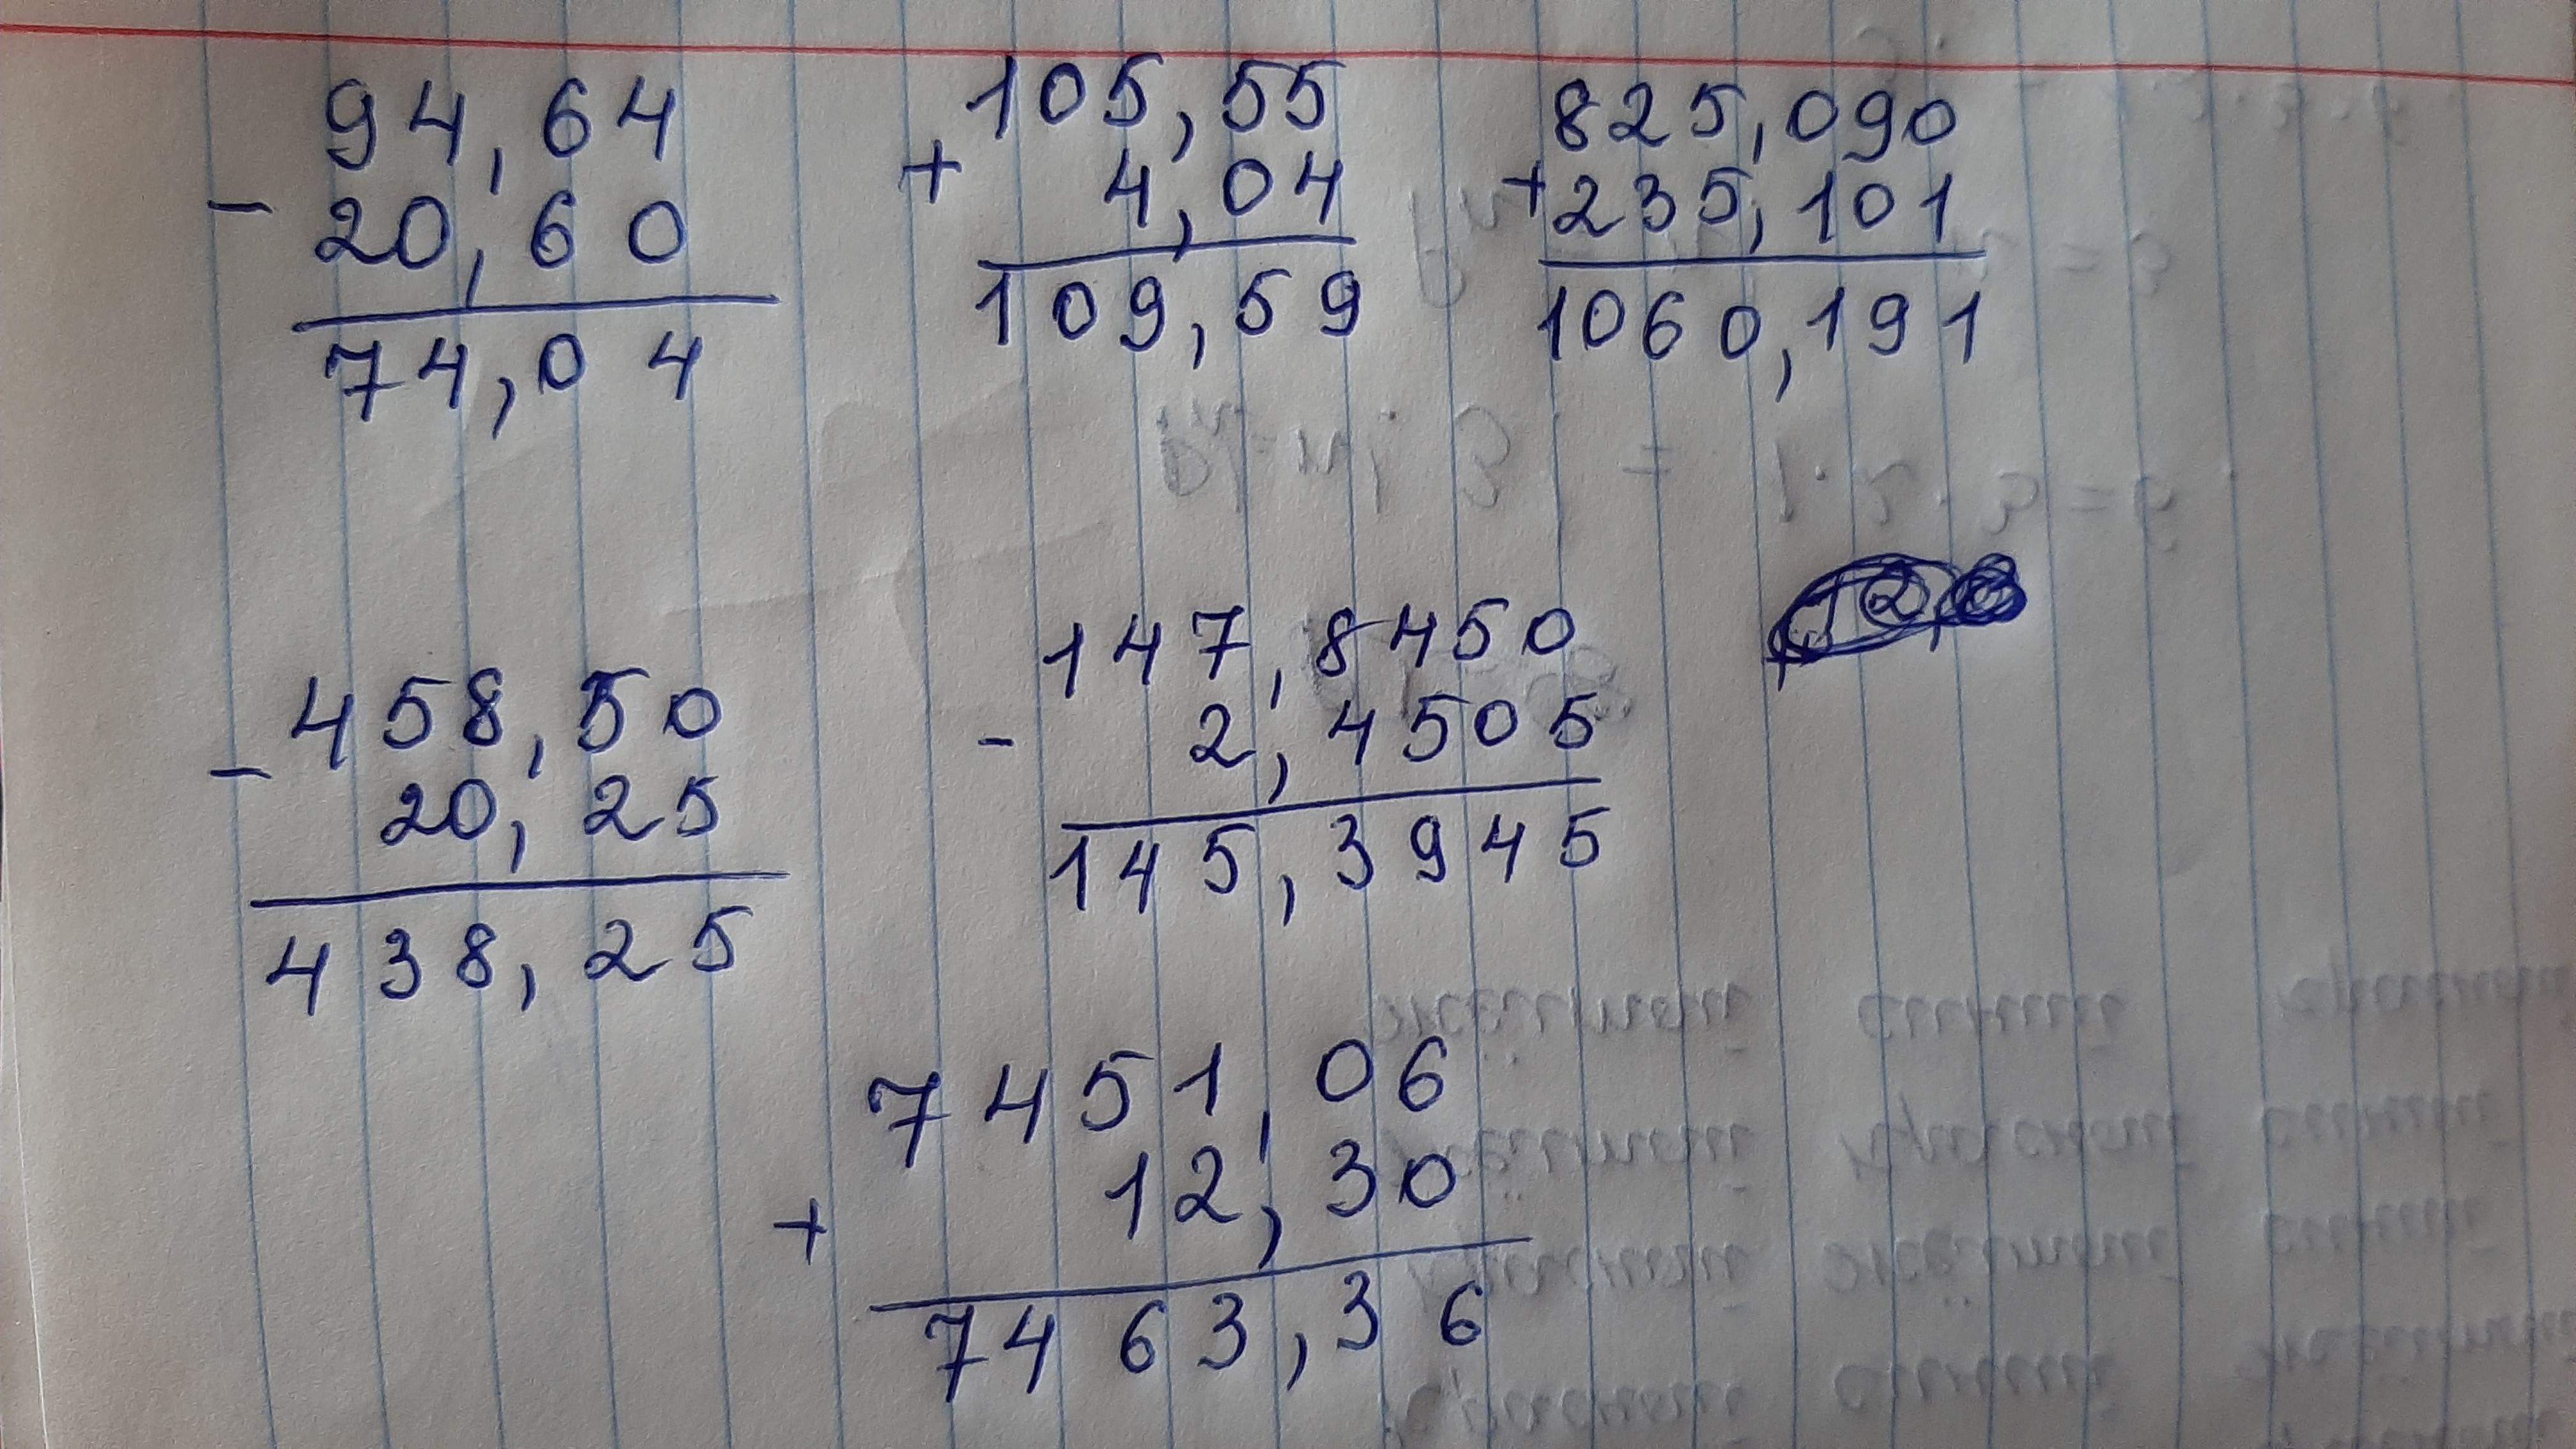 94,64
- 20,60
74,04
105,55
+ 4,04
109,59
825,090
+235,101
1060,191
458,50
- 20,25
438,25
147,8450
- 2,4505
145,3945
7451,06
+ 12,30
7463,36